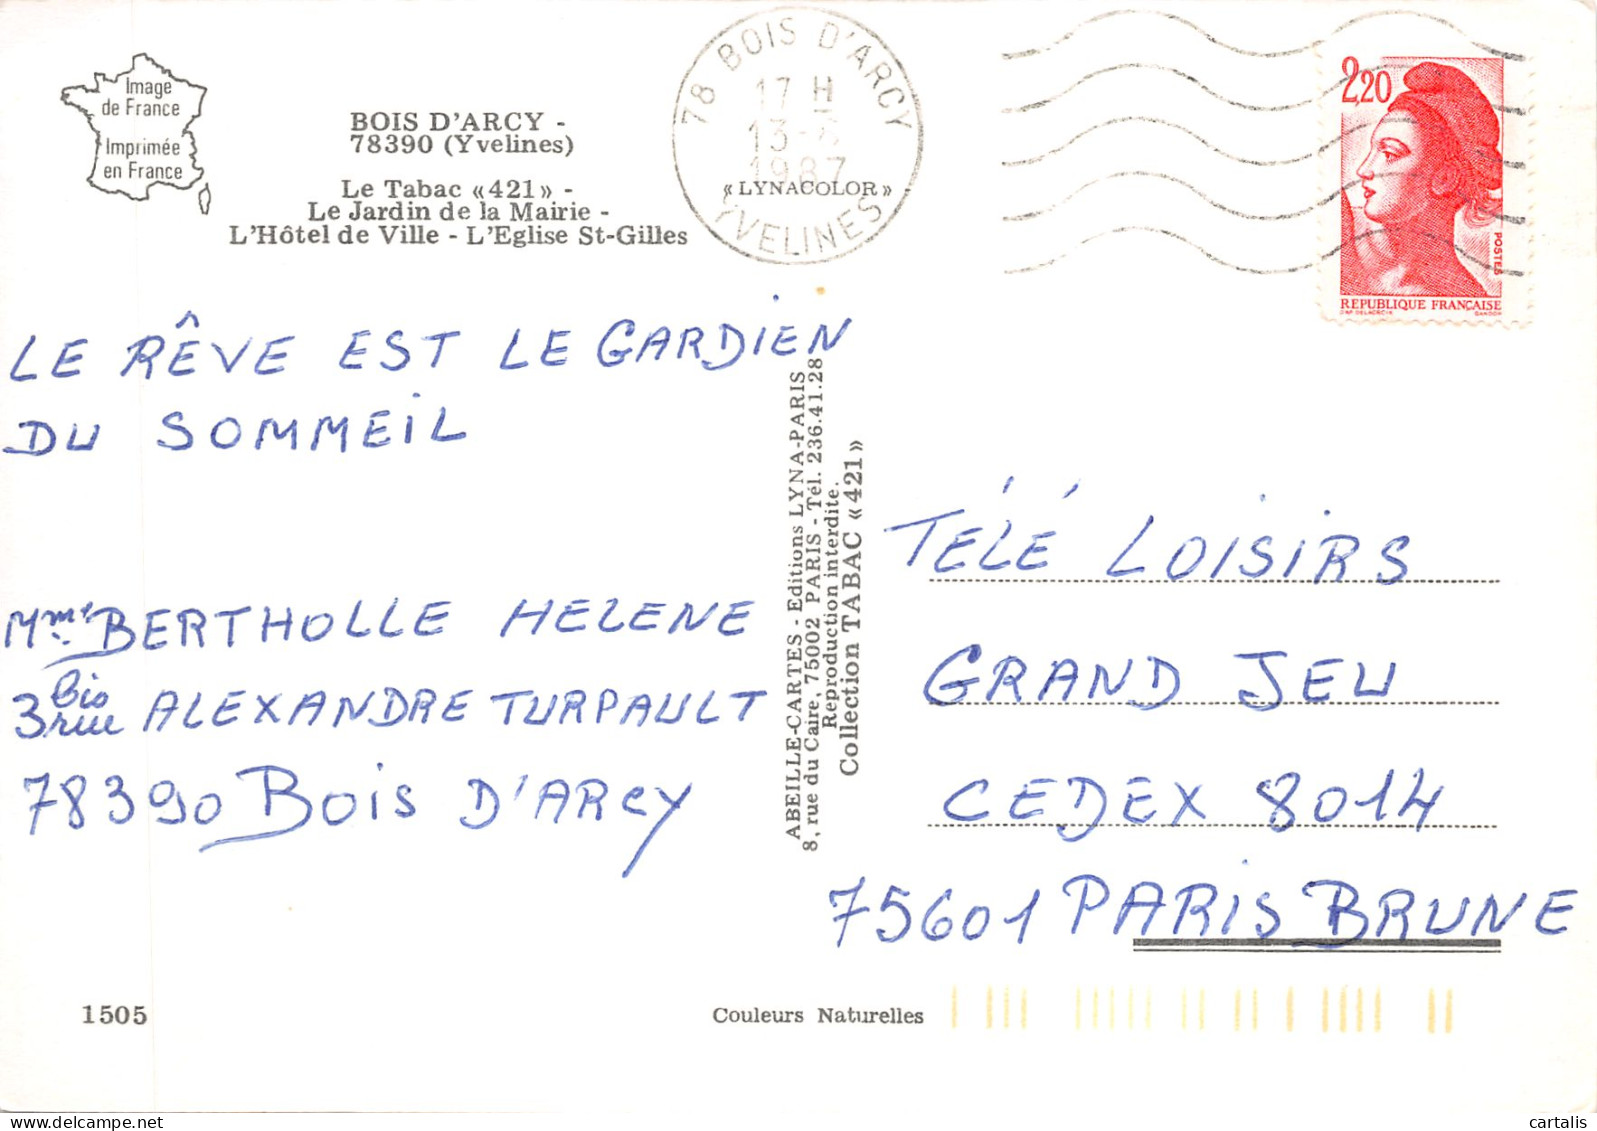 Image
de France
Imprimée
en France
BOIS D'ARCY -
78390 (Yvelines)
Le Tabac «421» -
Le Jardin de la Mairie -
L'Hôtel de Ville - L'Eglise St-Gilles
78 BOIS D'ARCY
17 H
13-
1987
«LYNACOLOR»
YVELINES
2,20
POSTES
REPUBLIQUE FRANÇAISE
LE RÊVE EST LE GARDIEN
DU SOMMEIL
Mme BERTHOLLE HELENE
3 bis rue ALEXANDRE TURPAULT
78390 BOIS D'ARCY
ABEILLE-CARTES - Editions LYNA-PARIS
8, rue du Caire, 75002 PARIS - Tél. 236.41.28
Reproduction interdite.
Collection TABAC «421»
TÉLÉ LOISIRS
GRAND JEU
CEDEX 8014
75601 PARIS BRUNE
1505
Couleurs Naturelles
cartalis